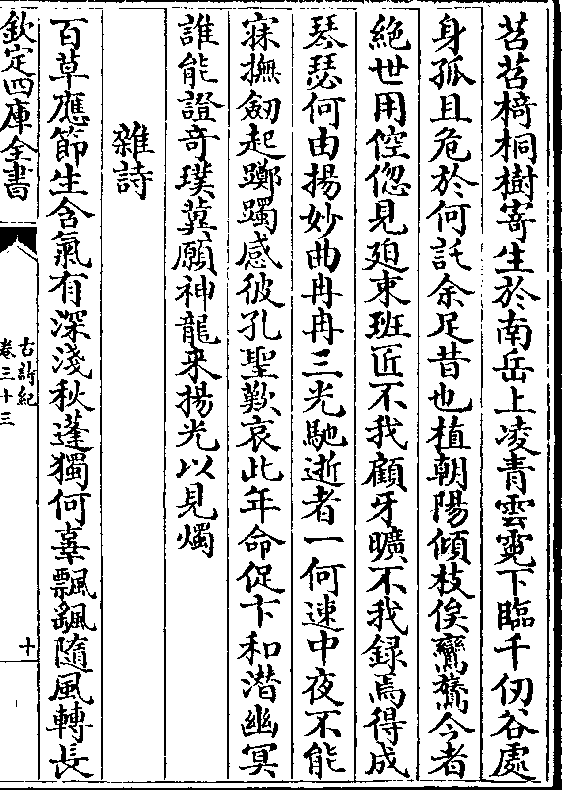 苕苕椅桐樹寄生於南岳上凌青雲霓下臨千仞谷處
身孤且危於何託余足昔也植朝陽傾枝俟鸞鷟今者
絶世用倥偬見廹束班匠不我顧牙曠不我録焉得成
琴瑟何由揚妙曲冉冉三光馳逝者一何速中夜不能
寐撫劒起躑躅感彼孔聖歎哀此年命促卞和潜幽冥
誰能證竒璞冀願神龍来揚光以見燭
雜詩
百草應節生含氣有深淺秋蓬獨何辜飄颻隨風轉長
欽定四庫全書
古詩紀
卷三十三
十